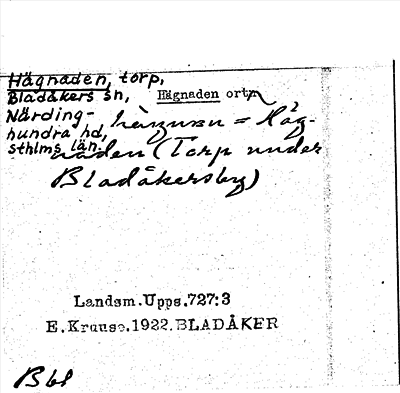 Hägnaden, torp,
Bladåkers sn,
Närding-
hundra hd,
sthlms län.
Hägnaden ortn
hägnan = Häg-
naden (Torp under
Bladåkersby)
Landsm.Upps.727:3
E.Krause.1922.BLADÅKER
Bbl